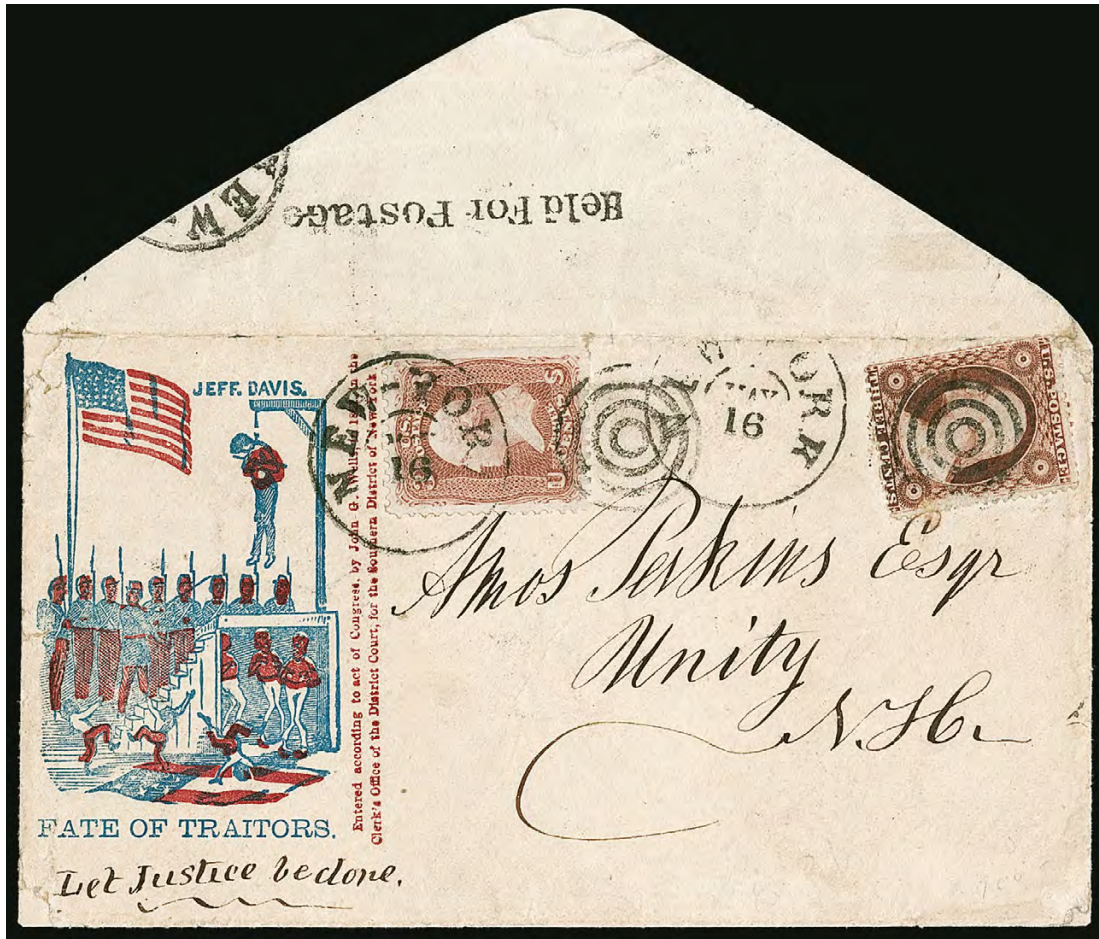 Held For Postage
NEW
JEFF. DAVIS.
Entered according to act of Congress, by John G. Wells, in the
Clerk's Office of the District Court, for the Southern District of New York
NEW YOR
16
NEW YORK
NOV
16
U.S. POSTAGE
THREE CENTS
Amos Perkins Esqr
Unity
N.H.
FATE OF TRAITORS.
Let Justice be done.